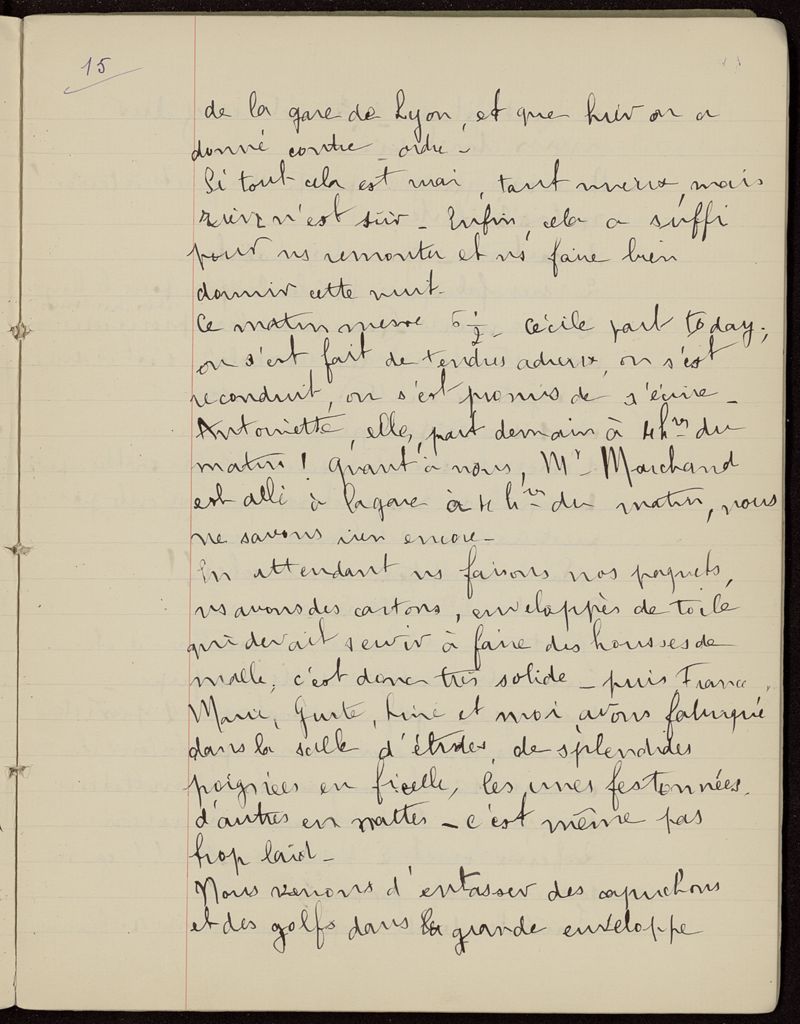 15
de la gare de Lyon, et que hier on a
donné contre-ordre -
Si tout cela est vrai, tant mieux, mais
rien n'est sûr - Enfin, cela a suffi
pour ns remonter et ns faire bien
dormir cette nuit.
Ce matin messe 6 ½ - Cécile part today;
on s'est fait de tendres adieux, on s'est
reconduit, on s'est promis de s'écrire -
Antoinette, elle, part demain à 4 hres du
matin! Quant à nous, Mr Marchand
est allé à la gare à 4 hres du matin, nous
ne savons rien encore -
En attendant ns faisons nos paquets,
ns avons des cartons, enveloppés de toile
qui devait servir à faire des housses de
malle, c'est donc très solide - puis France,
Marie, Guite, Line et moi avons fabriqué
dans la salle d'études, de splendides
poignées en ficelle, les unes festonnées,
d'autres en nattes - c'est même pas
trop laid -
Nous venons d'entasser des capuchons
et des golfs dans la grande enveloppe